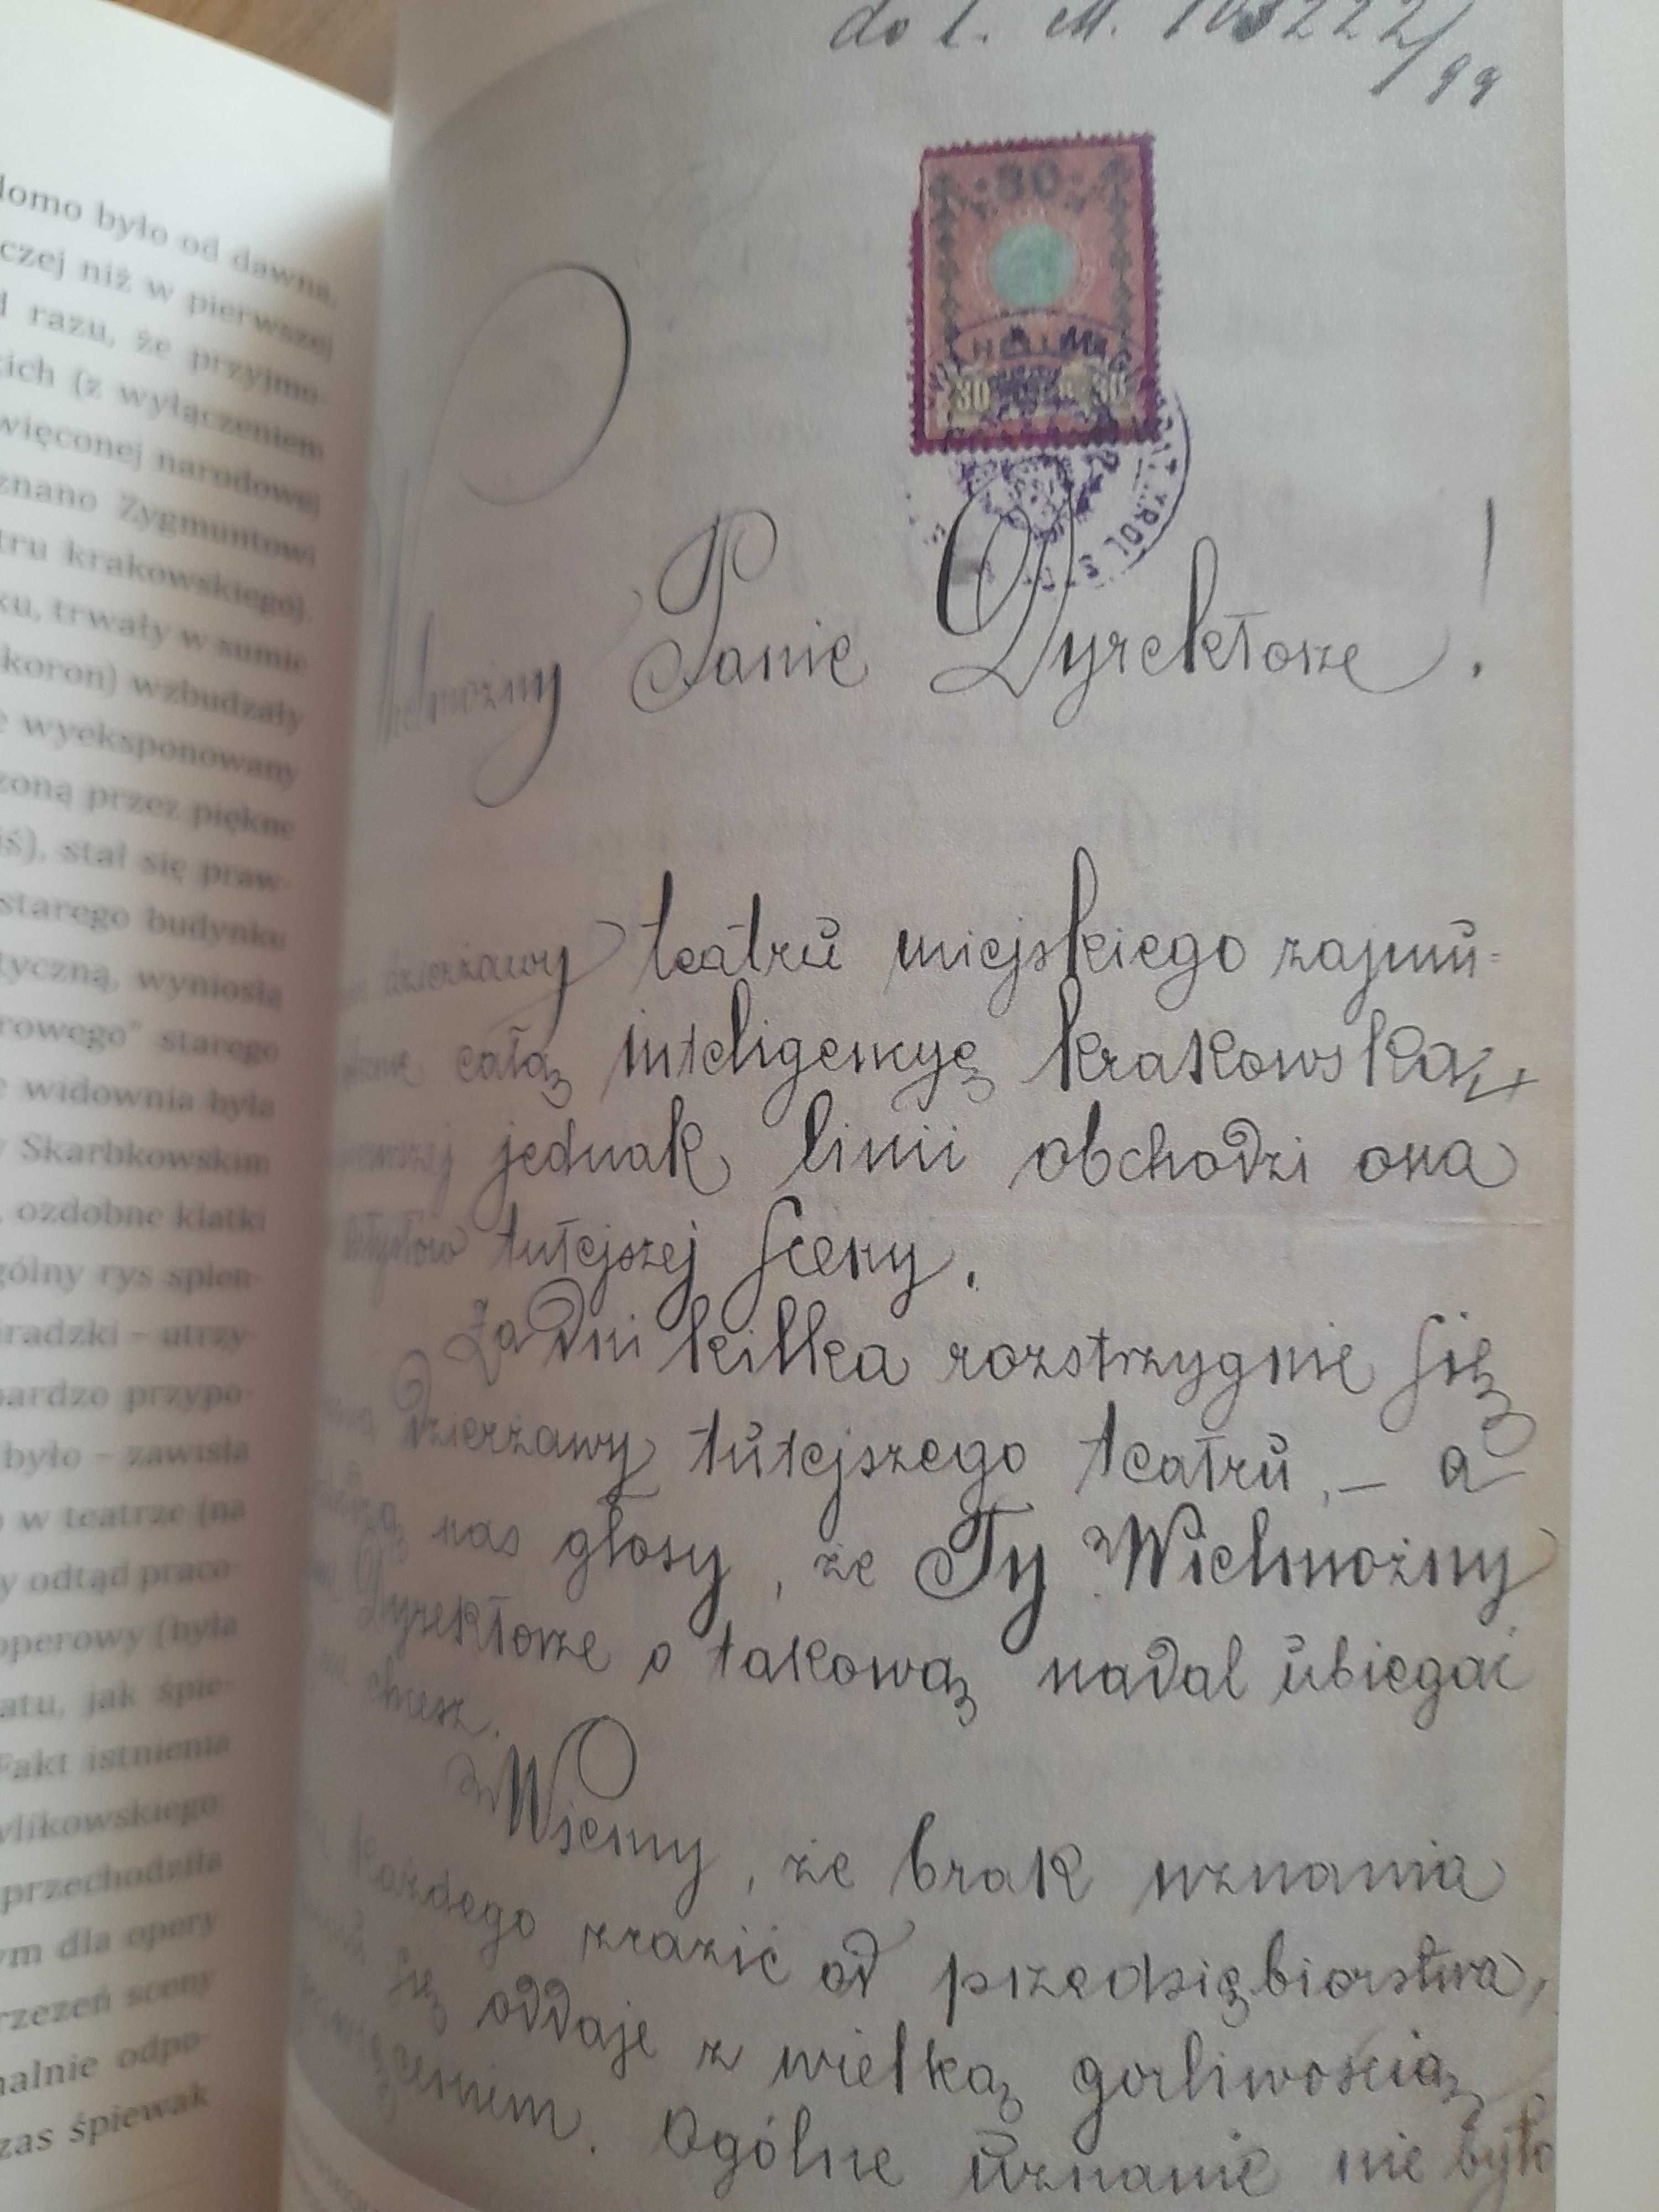 domo było od dawna,
czej niż w pierwszej
d razu, że przyjmo-
kich (z wyłączeniem
więconej narodowej
znano Zygmuntowi
tru krakowskiego).
ku, trwały w sumie
koron) wzbudzały
e wyeksponowany
zoną przez piękne
iś), stał się praw-
starego budynku
tyczną, wyniosła
rowego" starego
e widownia była
y Skarbkowskim
, ozdobne klatki
gólny rys spien-
iradzki – utrzy-
bardzo przypo-
było – zawisła
o w teatrze (na
y odtąd praco-
operowy (była
atu, jak śpie-
Fakt istnienia
wlikowskiego
przechodziła
ym dla opery
rzezeń sceny
nalnie odpo-
zas śpiewak
do l. M. 103222/99
30
30 30
Wielmożny Panie Dyrektorze!
dzierżawy teatru miejskiego zajmu-
całą inteligencyę krakowską,
jednak linii obchodzi ona
Artystów tutejszej sceny.
Za dni kilka rozstrzygnie się
dzierżawy tutejszego teatru, – a
nas głosy, że Ty Wielmożny
Dyrektorze o takową nadal ubiegać
chcesz.
Wiemy, że brak uznania
każdego zrazić od przedsiębiorstwa,
się oddaje z wielką gorliwością
Ogólne uznanie nie było